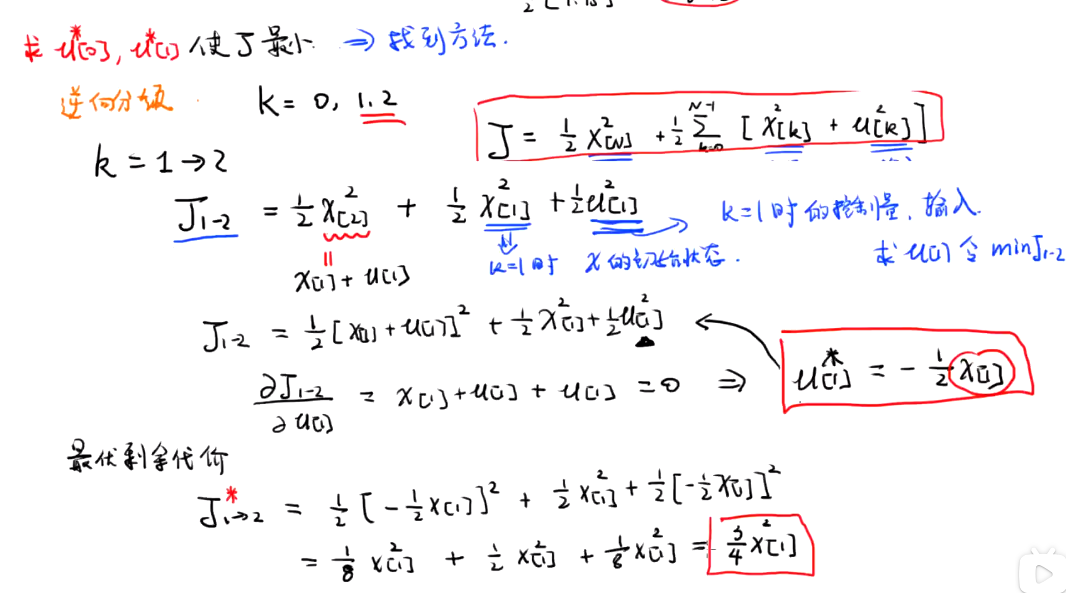 求 u*[0], u*[1] 使 J 最小 ⇒ 找到方法.
逆向分级 k = 0, 1, 2
J = 1/2 x²[N] + 1/2 Σ_{k=0}^{N-1} [x²[k] + u²[k]]
k = 1 → 2
J₁₋₂ = 1/2 x²[2] + 1/2 x²[1] + 1/2 u²[1] → k=1时的控制量, 输入.
‖ ⇓ k=1时 x的初始状态. 求 u[1] 令 min J₁₋₂
x[1] + u[1]
J₁₋₂ = 1/2 [x[1] + u[1]]² + 1/2 x²[1] + 1/2 u²[1] ←
∂J₁₋₂/∂u[1] = x[1] + u[1] + u[1] = 0 ⇒ u*[1] = - 1/2 x[1]
最优剩余代价
J*₁→₂ = 1/2 [-1/2 x[1]]² + 1/2 x²[1] + 1/2 [-1/2 x[1]]²
= 1/8 x²[1] + 1/2 x²[1] + 1/8 x²[1] = 3/4 x²[1]